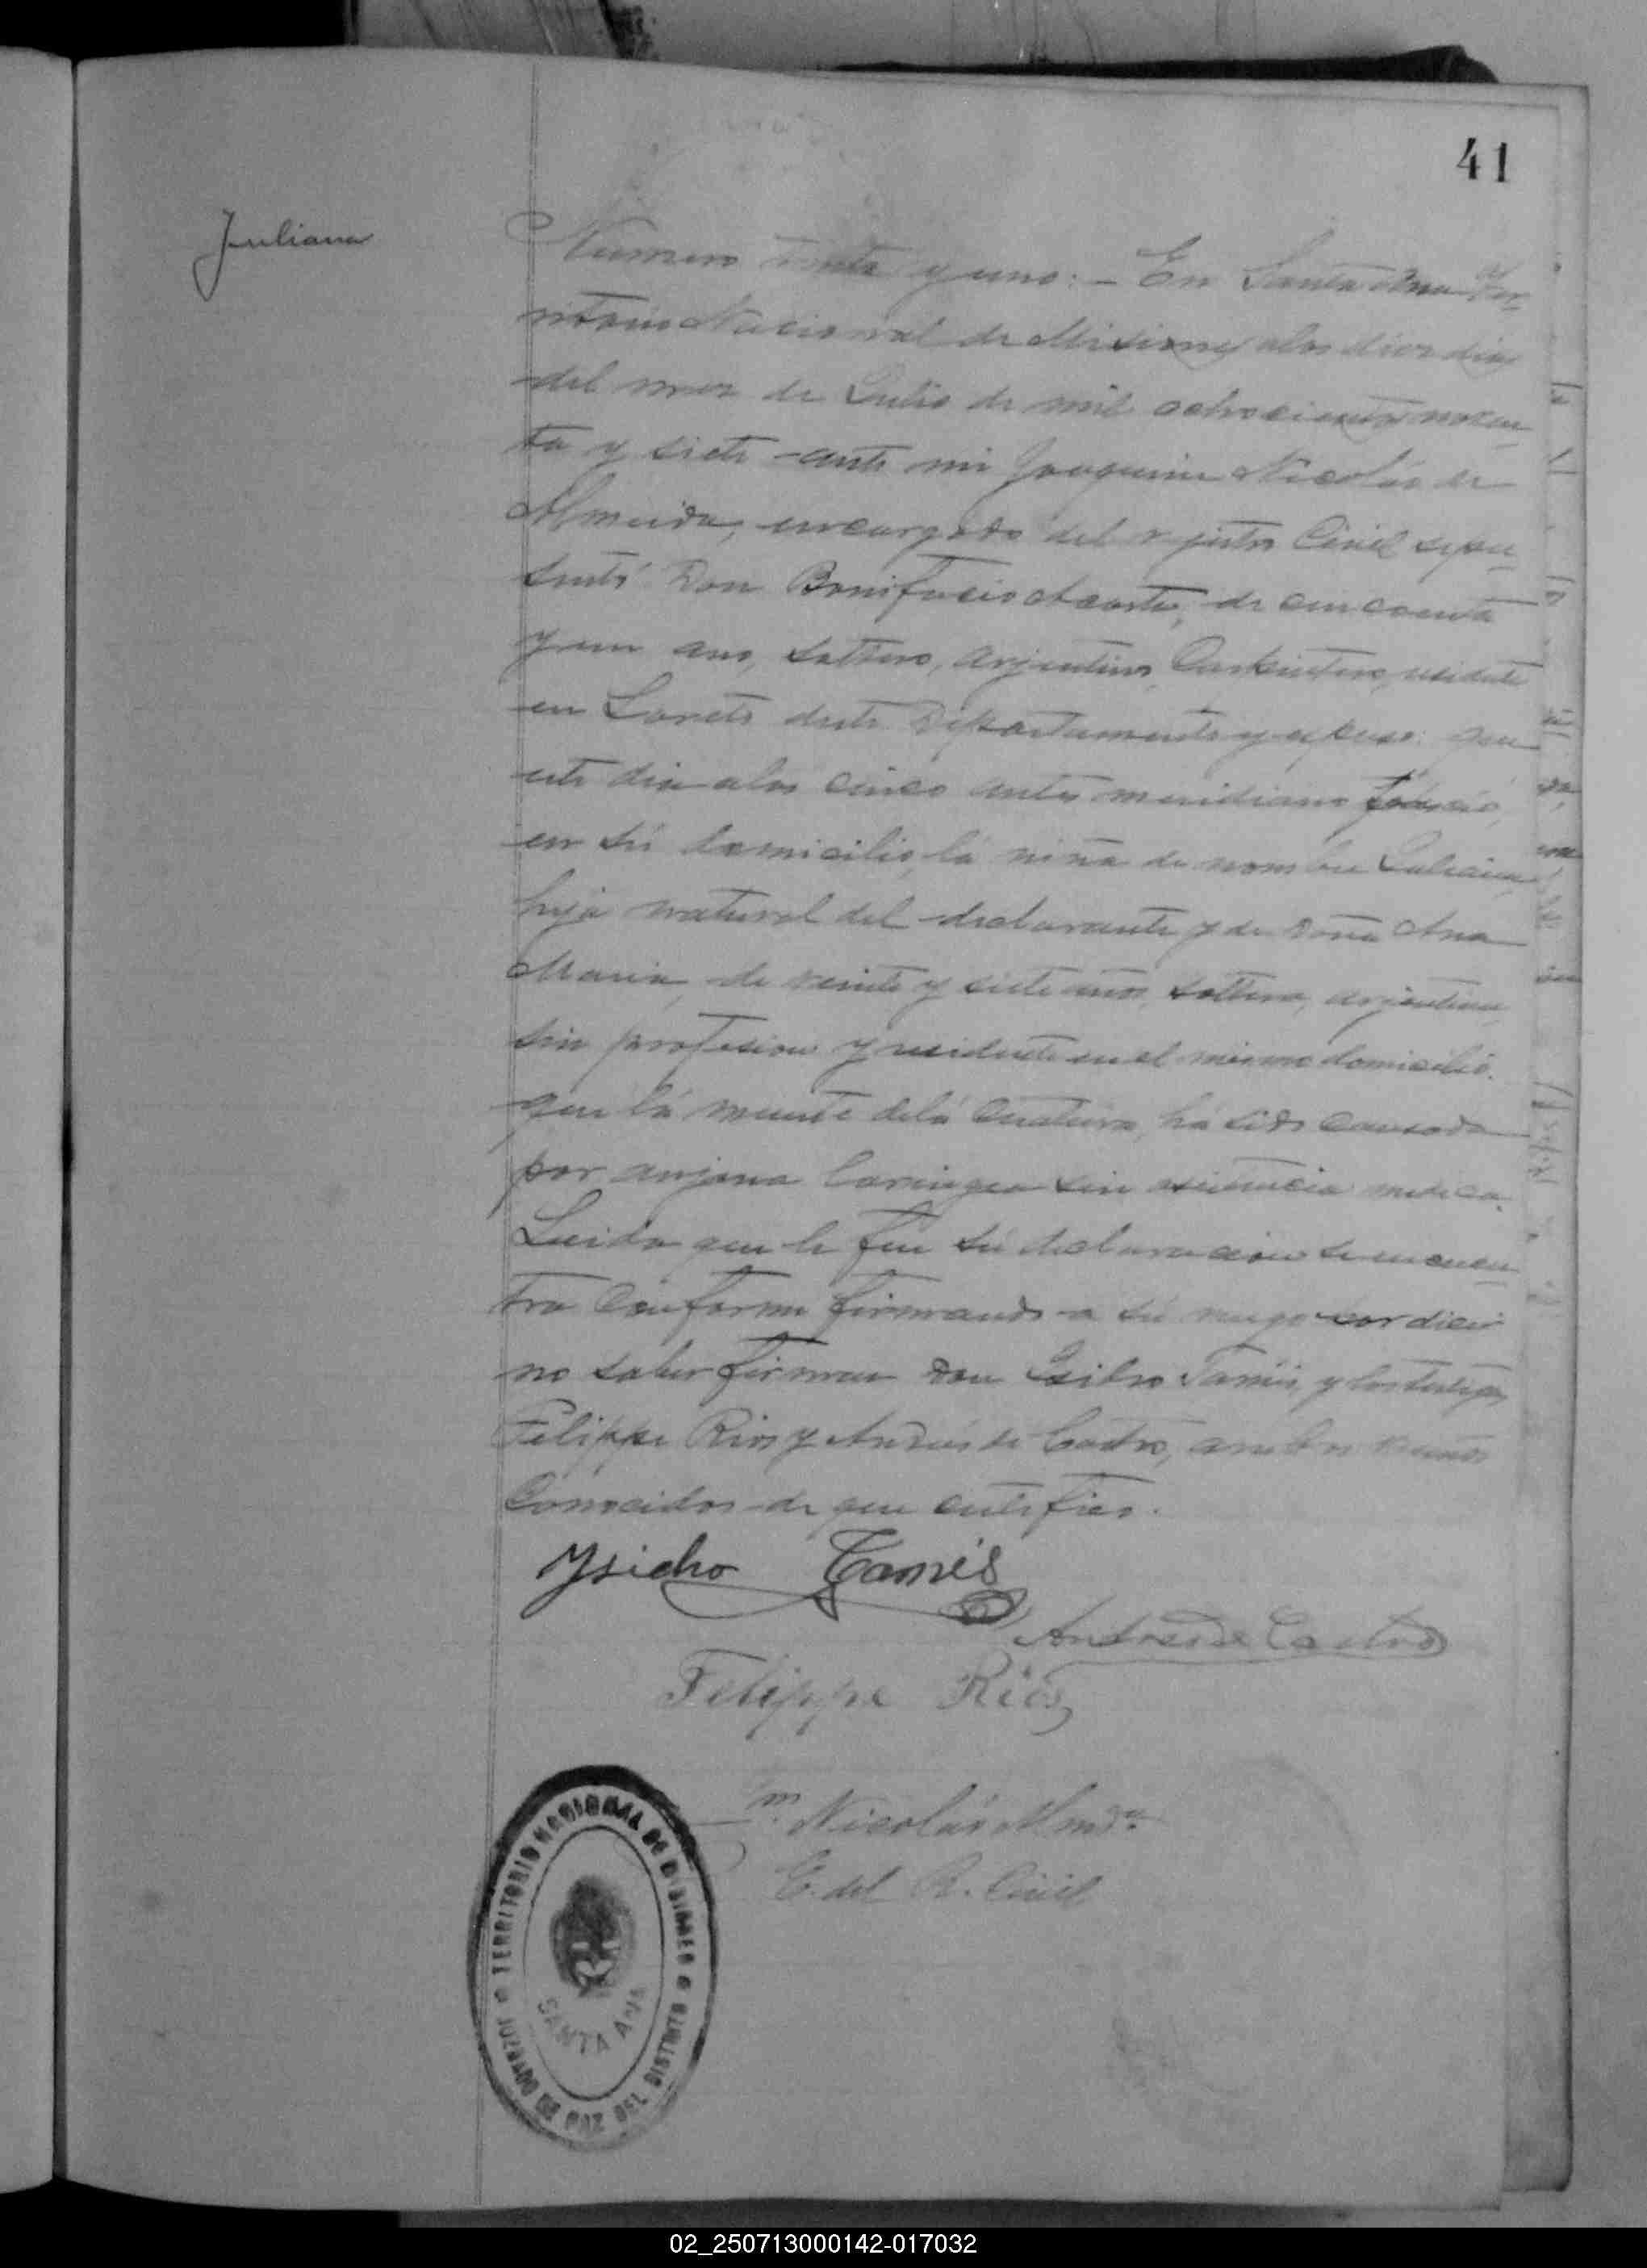 41
Juliana
Numero treinta y uno: – En Santa Ana Ter-
ritorio Nacional de Misiones a los diez dias
del mez de Julio de mil ochocientos noven-
ta y siete ante mi Joaquim Nicolás de
Almeida, encargado del rejistro Civil se pre-
sentó Don Bonifacio Acosta, de cincuenta
y un ano, soltero, arjentino, Carpintero, residente
en Loreto deste Departamento y expuso: que
este dia a las cinco antes meridiano falleció,
en sú domicilio, lá niña de nombre Juliana,
hija natural del declarante y de Dona Ana
Maria, de veinte y siete anos, soltera, arjentina,
sin profesion y residente en el mismo domicilio.
que lá muerte de lá Criatura, há sido causada
por anjina laringea sin asistencia medica.
Leida que le fue sú declaracion se encuen-
tra Conforme firmando a sú ruego por dicir
no saber firmar Don Isidro Tamés, y los testigos
Felippe Rios y Andrés de Castro, ambos vecinos
Conocidos de que certifico.
Ysidro Tamés
Andres de Castro
Felippe Rios
m. Nicolás Almda.
E. del R. Civil
TERRITORIO NACIONAL DE MISIONES
SANTA ANA
JUZGADO DE PAZ DEL DISTRITO
02_250713000142-017032